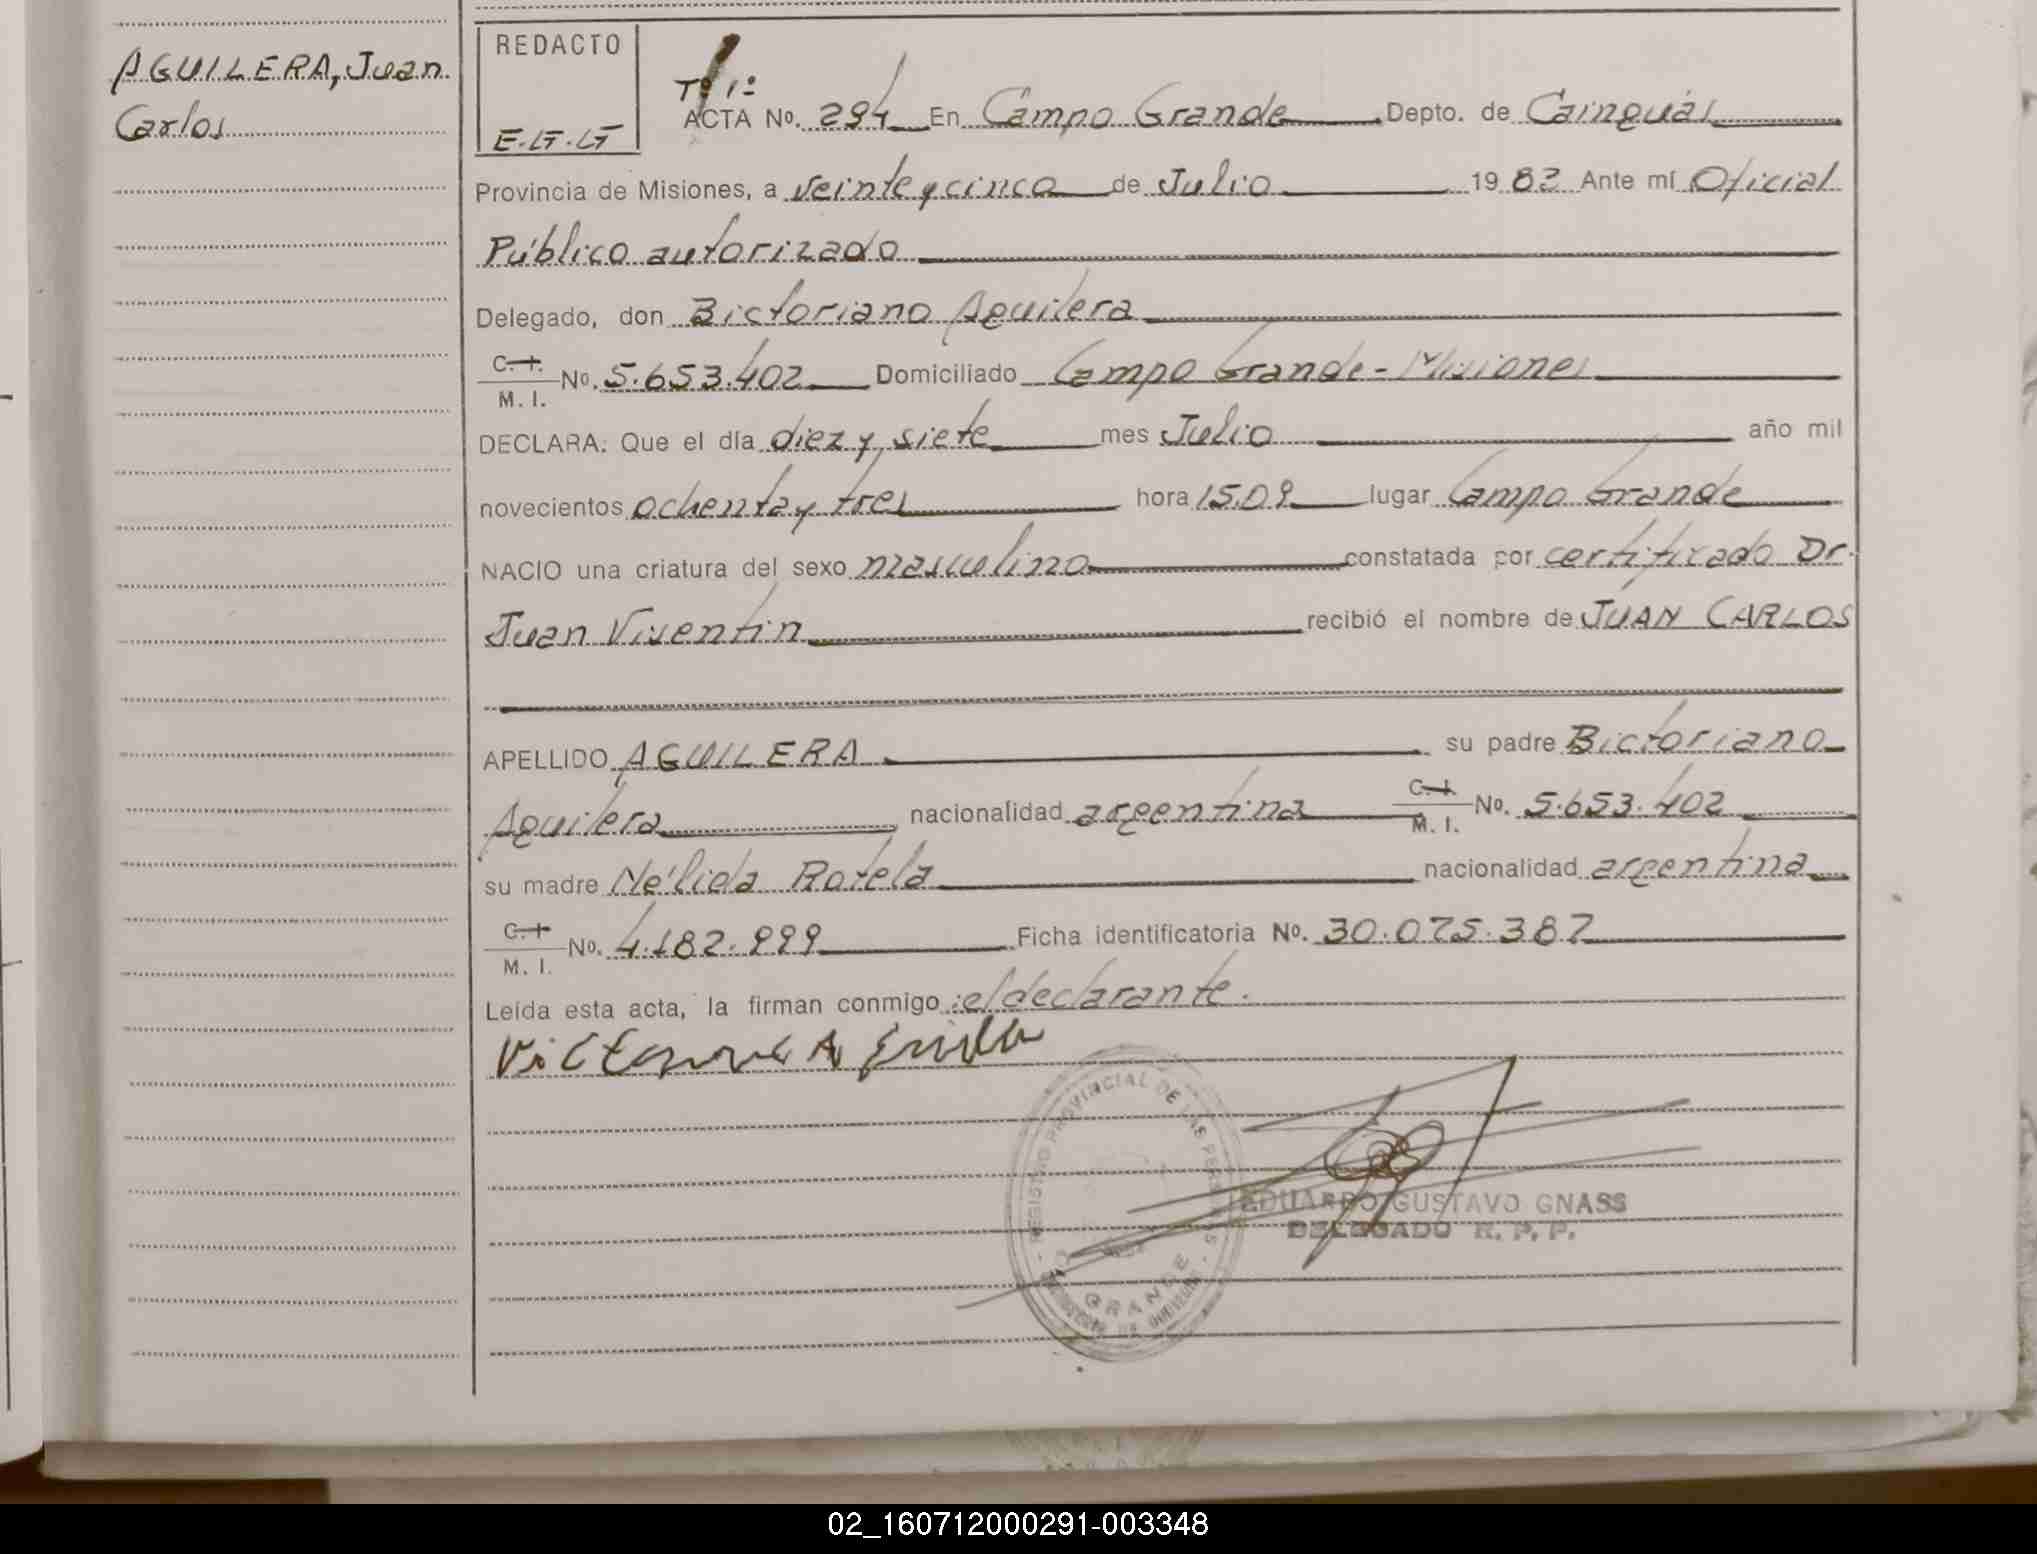 AGUILERA, Juan
Carlos
REDACTO
E.G.G
Tº 1º
ACTA Nº. 294 En Campo Grande Depto. de Cainguás
Provincia de Misiones, a veinte y cinco de Julio 19 83 Ante mí Oficial
Público autorizado
Delegado, don Bictoriano Aguilera
C. I.
M. I. Nº. 5.653.402 Domiciliado Campo Grande - Misiones
DECLARA: Que el día diez y siete mes Julio año mil
novecientos ochenta y tres hora 15.09 lugar Campo Grande
NACIO una criatura del sexo masculino constatada por certificado Dr.
Juan Visentin recibió el nombre de JUAN CARLOS
APELLIDO AGUILERA su padre Bictoriano
Aguilera nacionalidad argentina C. I.
M. I. Nº. 5.653.402
su madre Nélida Rotela nacionalidad argentina
C. I.
M. I. Nº. 4.182.999 Ficha identificatoria Nº. 30.075.387
Leída esta acta, la firman conmigo: el declarante.
REGISTRO PROVINCIAL DE LAS PERSONAS
GRANDE
EDUARDO GUSTAVO GNASS
DELEGADO R. P. P.
02_160712000291-003348